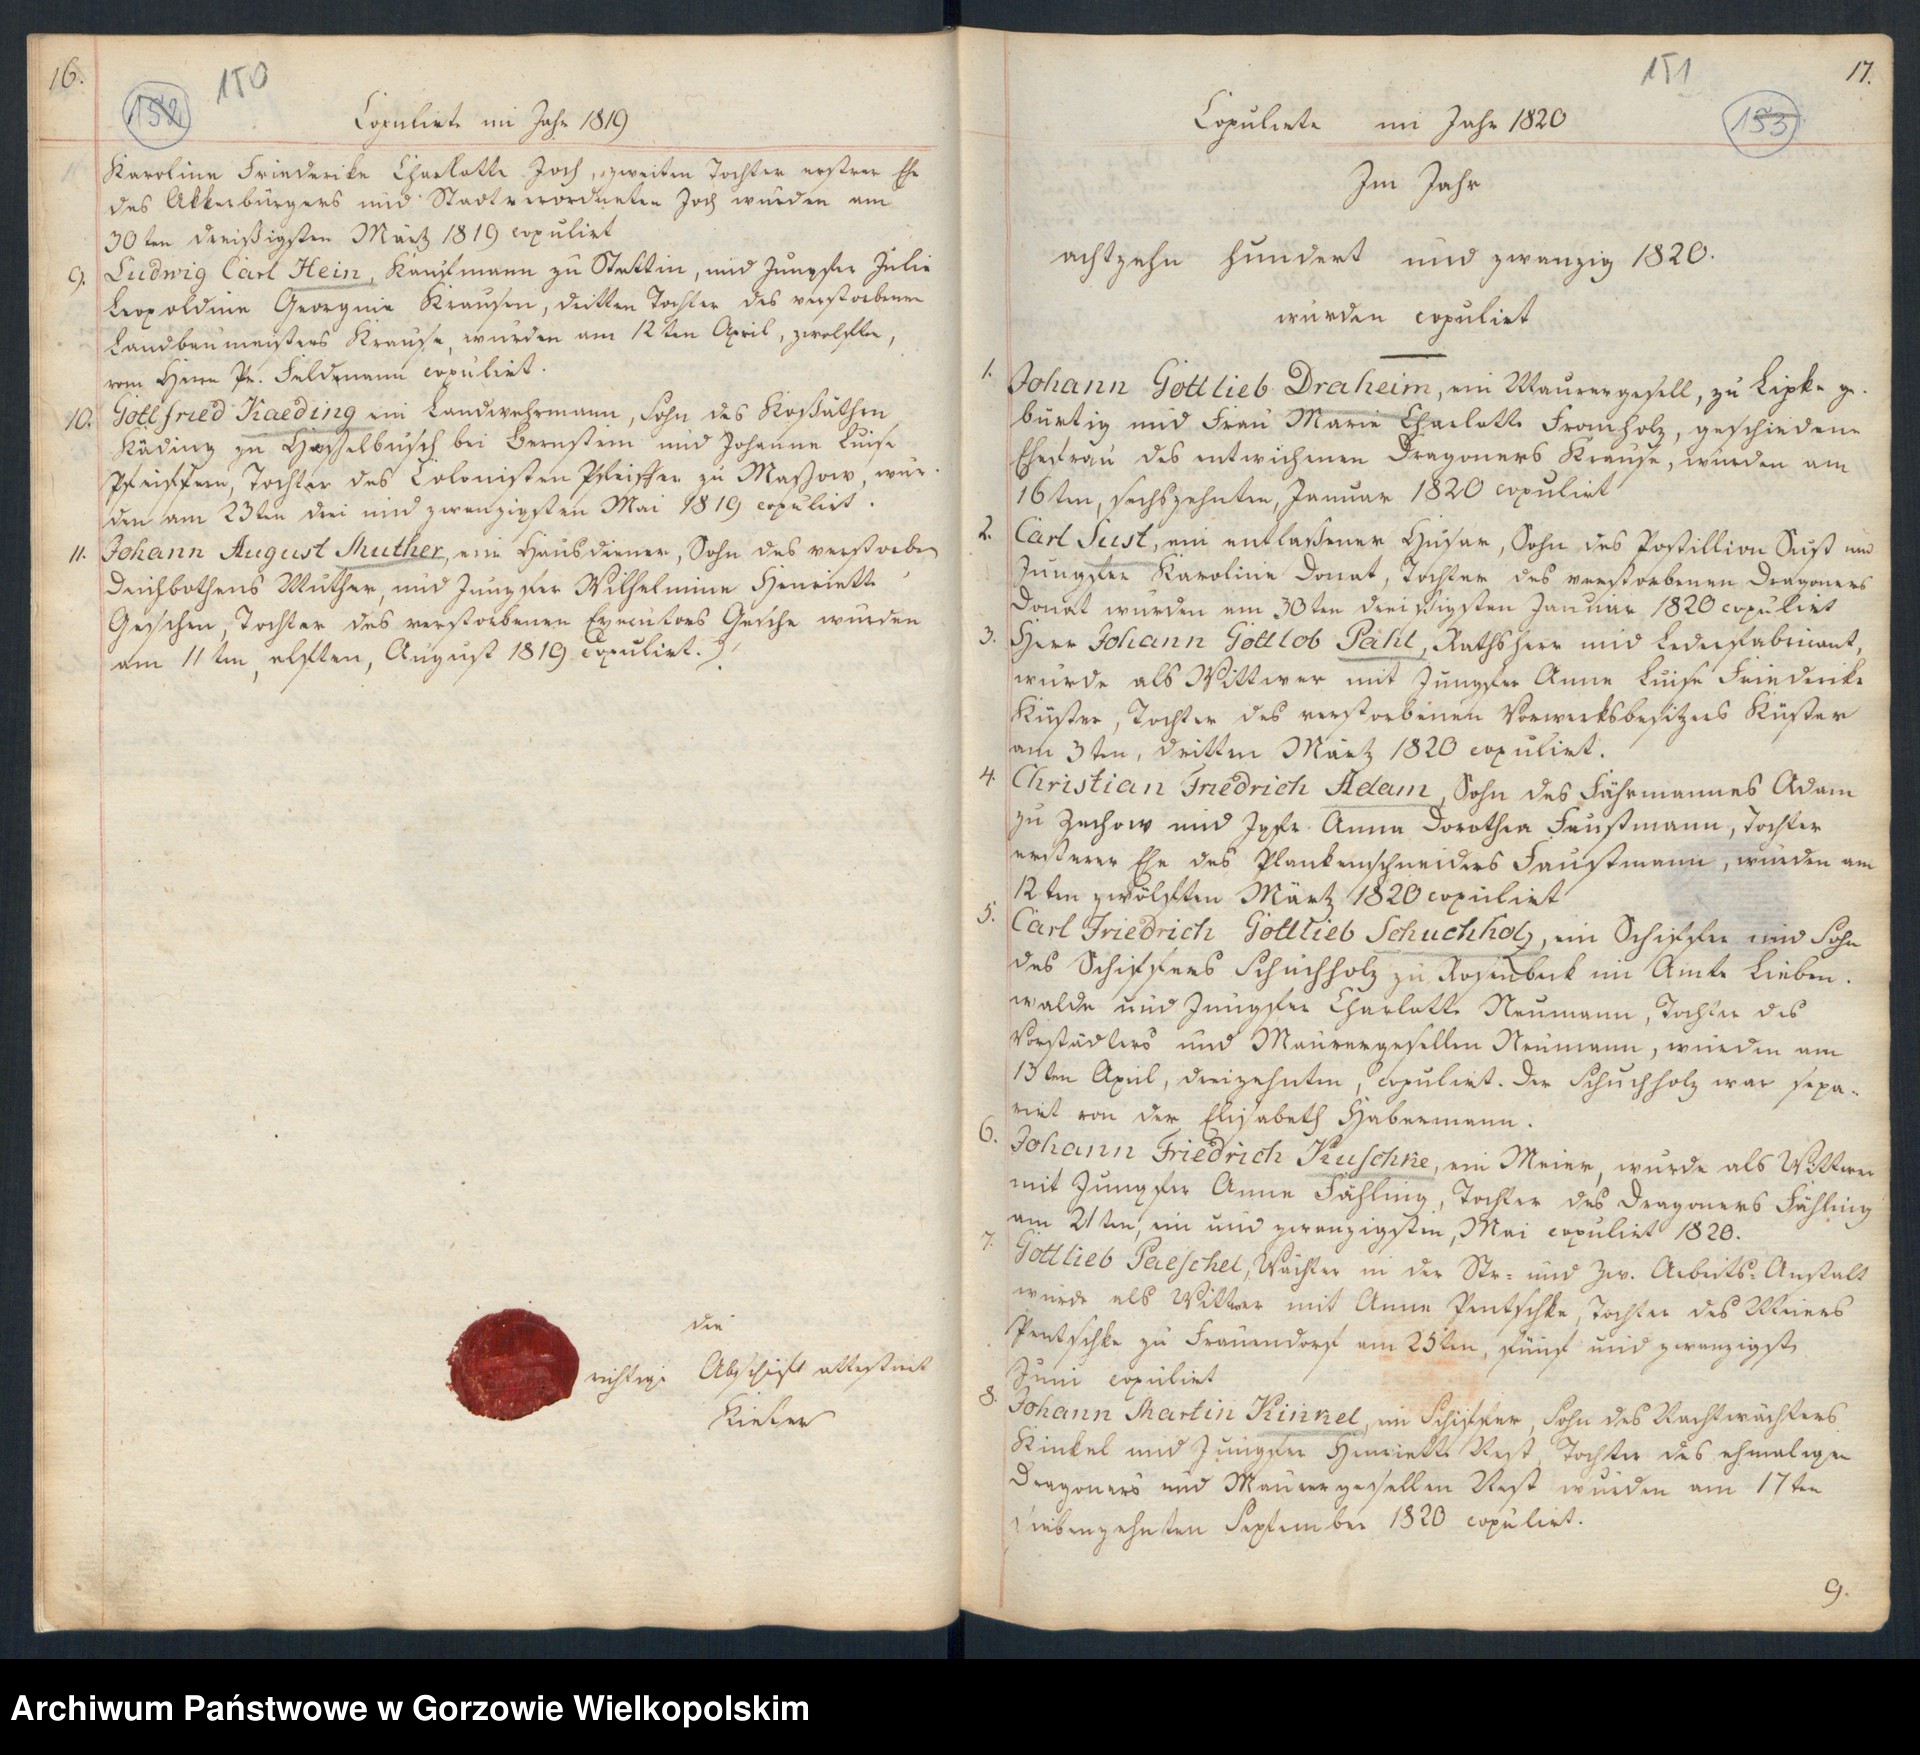 16.
152
150
Copulirte im Jahr 1819
Karoline Friederike Charlotte Joch, zweiten Tochter erstrer Ehe
des Akkerbürgers und Stadtverordneten Joch wurden am
30ten dreißigsten März 1819 copulirt
9. Ludwig Carl Hein, Kaufmann zu Stettin, und Jungfer Julie
Leopoldine Georgine Krausen, dritten Tochter des verstorbenen
Landbaumeisters Krause, wurden am 12ten April, zwölften,
vom Herrn Pr. Feldmann copulirt.
10. Gottfried Kaeding ein Landwehrmann, Sohn des Koßäthen
Käding zu Hasselbusch bei Bernstein und Johanne Luise
Pfeiffern, Tochter des Colonisten Pfeiffer zu Maßow, wur-
den am 23ten drei und zwanzigsten Mai 1819 copulirt.
11. Johann August Muther, ein Hausdiener, Sohn des verstorben
Deichbothens Muther, und Jungfer Wilhelmine Henriette
Geschen, Tochter des verstorbenen Executors Gesche wurden
am 11ten, elften, August 1819 copulirt.
die
richtige Abschrift attestiret
151
17.
153
Copulirte im Jahr 1820
Im Jahr
achtzehn hundert und zwanzig 1820.
wurden copulirt
1. Johann Gottlieb Draheim, ein Maurergesell, zu Lipke ge-
bürtig und Frau Marie Charlotte Fromholz, geschiedene
Ehefrau des entwichenen Dragoners Krause, wurden am
16ten, sechszehnten, Januar 1820 copulirt
2. Carl Sust, ein entlaßener Husar, Sohn des Postillion Sust und
Jungfer Karoline Donat, Tochter des verstorbenen Dragoners
Donat wurden am 30ten dreißigsten Januar 1820 copulirt
3. Herr Johann Gottlob Pahl, Rathsherr und Lederfabricant,
wurde als Wittwer mit Jungfer Anne Luise Friederike
Küster, Tochter des verstorbenen Vorwerksbesitzers Küster
am 3ten, dritten März 1820 copulirt.
4. Christian Friedrich Adam, Sohn des Fährmannes Adam
zu Zechow und Jgfr. Anna Dorothea Faustmann, Tochter
ersterer Ehe des Plankenschneiders Faustmann, wurden am
12ten zwölften März 1820 copulirt
5. Carl Friedrich Gottlieb Schuchholz, ein Schiffer und Sohn
des Schiffers Schuchholz zu Rosenbeck im Amte Lieben-
walde und Jungfer Charlotte Neumann, Tochter des
Vorstädters und Maurergesellen Neumann, wurden am
13ten April, dreizehnten, copulirt. Der Schuchholz war sepa-
rirt von der Elisabeth Habermann.
6. Johann Friedrich Kuschke, ein Meier, wurde als Wittwer
mit Jungfer Anne Fähling, Tochter des Dragoners Fähling
am 21ten, ein und zwanzigsten, Mai copulirt 1820.
7. Gottlieb Paeschel, Wächter in der Str- und Zw. Arbeits-Anstalt
wurde als Wittwer mit Anne Pentschke, Tochter des Meiers
Pentschke zu Frauendorf am 25ten, fünf und zwanzigst
Juni copulirt
8. Johann Martin Kinkel, ein Schiffer, Sohn des Nachtwächters
Kinkel und Jungfer Henriette Rest, Tochter des ehmaligen
Dragoners und Maurergesellen Rest wurden am 17ten
siebenzehnten September 1820 copulirt.
9.
Archiwum Państwowe w Gorzowie Wielkopolskim